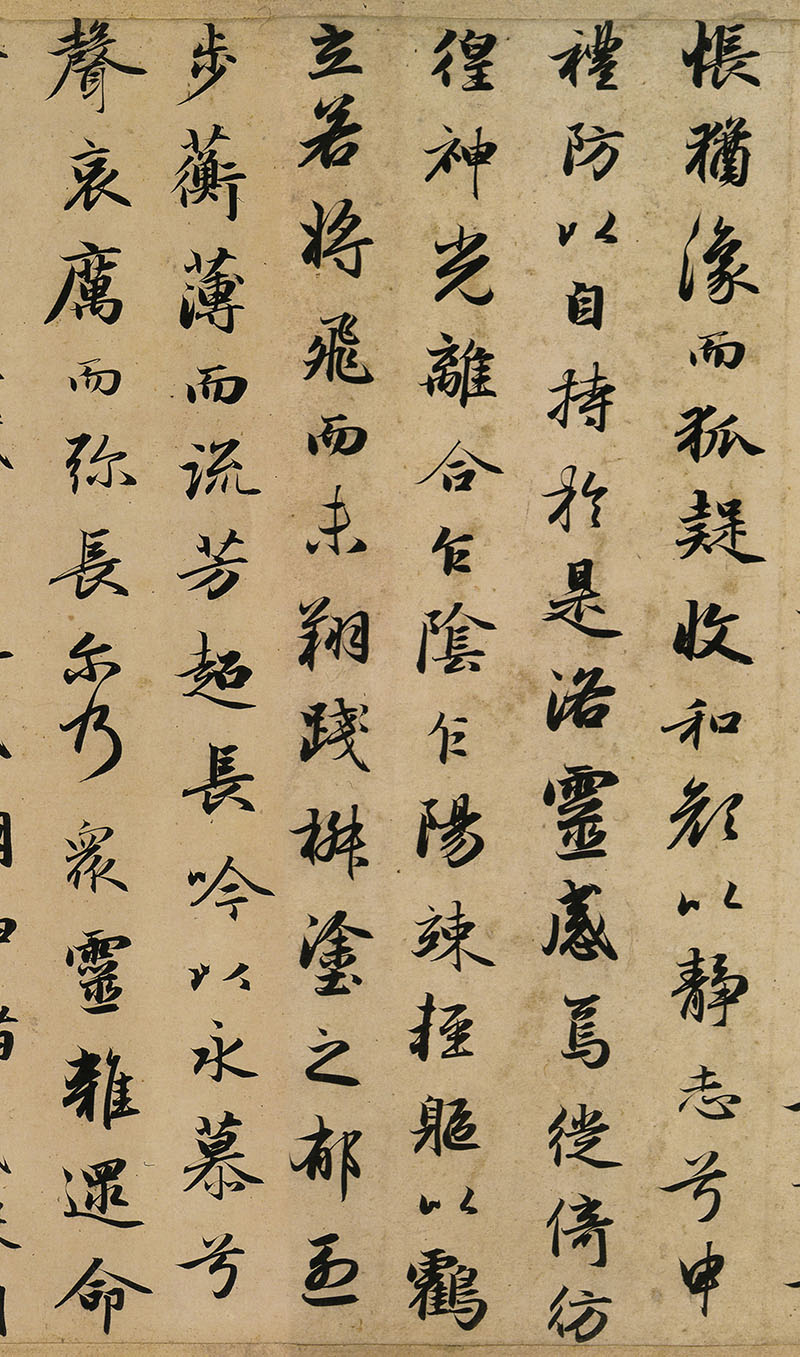 悵猶濠而狐疑收和顔以静志兮申
禮防以自持於是洛靈感焉徙倚彷
徨神光離合乍陰乍陽竦輕軀以鶴
立若将飛而未翔踐椒塗之郁烈
步蘅薄而流芳超長吟以永慕兮
聲哀厲而弥長尔乃衆靈雜遝命